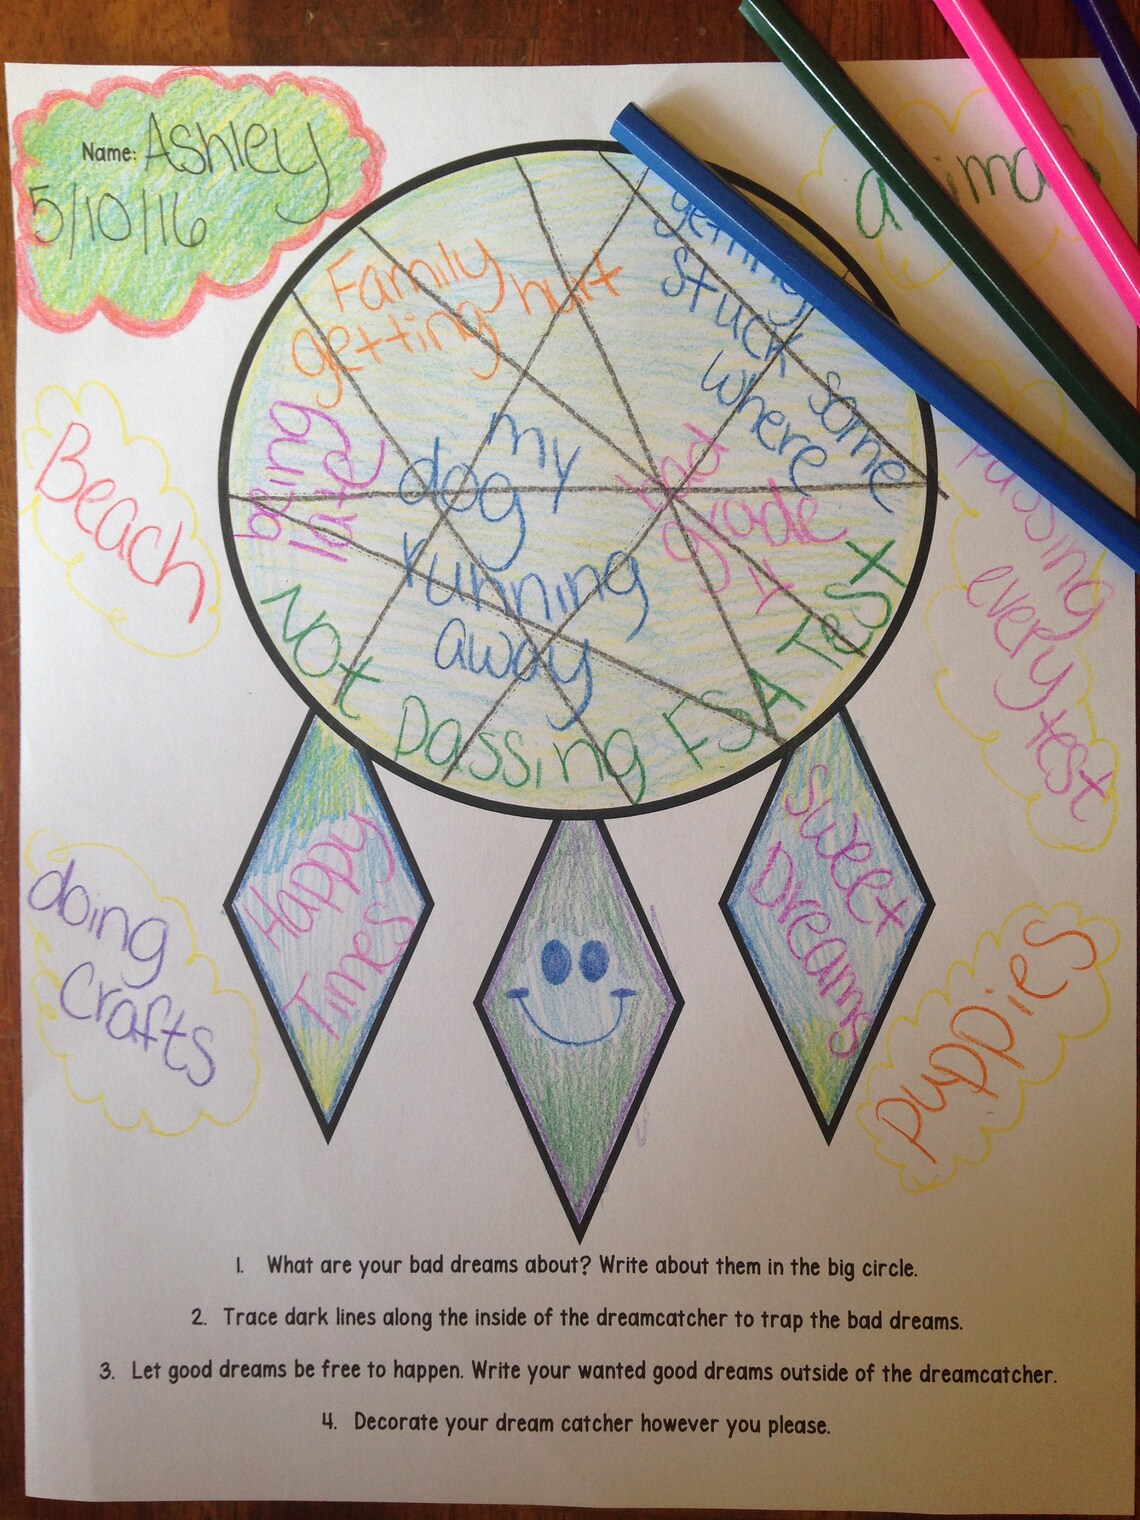 Name: Ashley
5/10/16
animals
Family
getting hurt
getting
stuck some
where
being
late
my
dog
running
away
bad
grade
Not passing FSA Test
Beach
passing
every
test
doing
crafts
puppies
Happy
Times
Sweet
Dreams
1. What are your bad dreams about? Write about them in the big circle.
2. Trace dark lines along the inside of the dreamcatcher to trap the bad dreams.
3. Let good dreams be free to happen. Write your wanted good dreams outside of the dreamcatcher.
4. Decorate your dream catcher however you please.